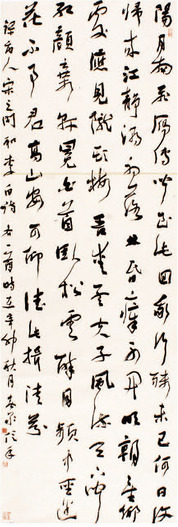 陽月南飛雁傳聞至此回我行殊未已何日復
歸來江靜潮初落林昏瘴不開明朝望鄉
處應見隴頭梅吾愛孟夫子風流天下聞
紅顏棄軒冕白首臥松雲醉月頻中聖迷
花不事君高山安可仰徒此揖清芬
唐人宋之問和李白詩二首時辛卯秋月